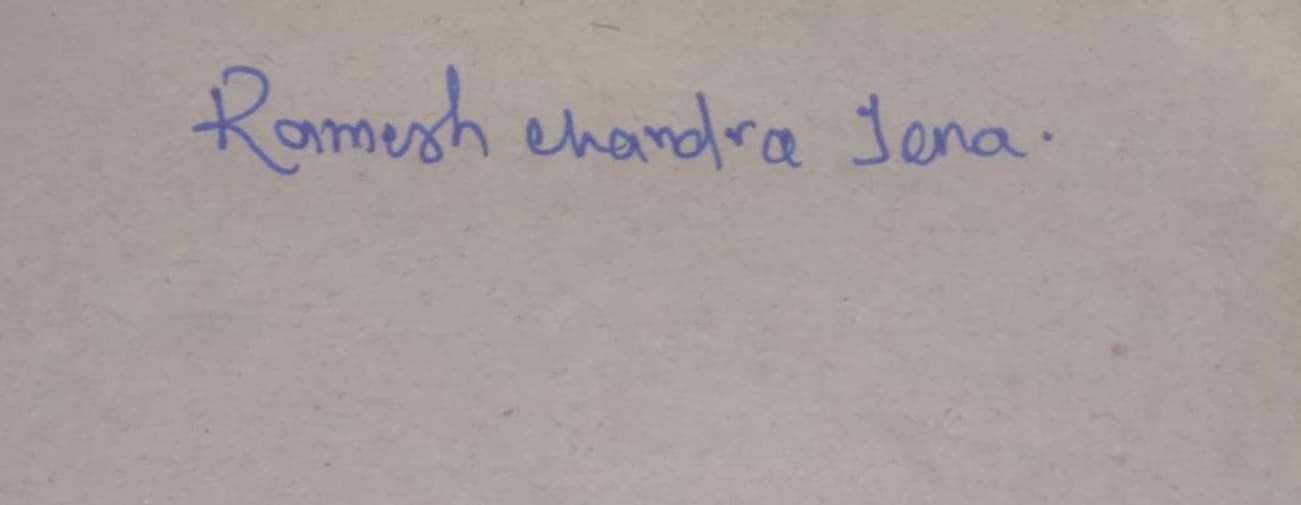 Ramesh chandra Jena.